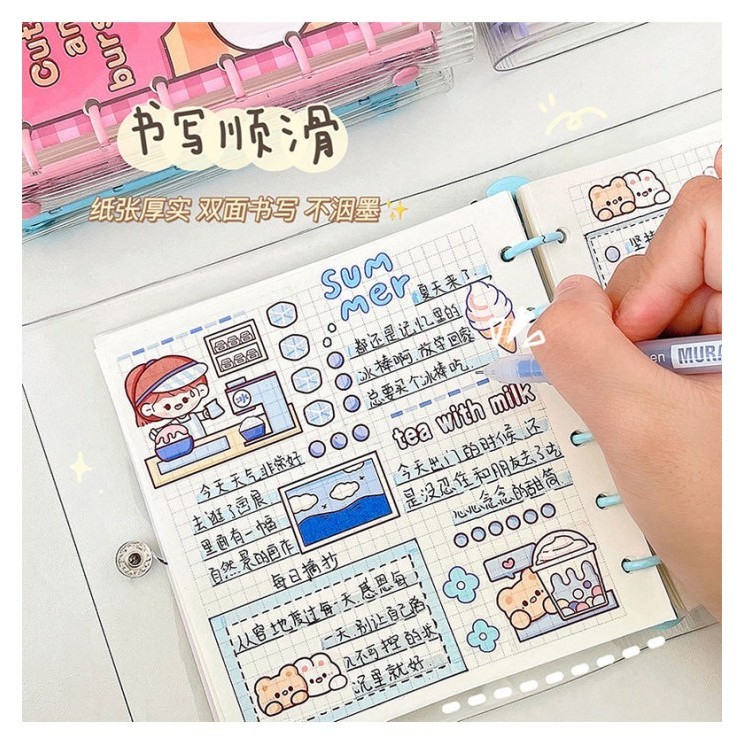 Cut
an
burs
书写顺滑
纸张厚实 双面书写 不洇墨
SUM
mer
夏天来了
都还是记忆里的
冰棒啊.放学回家
总要买个冰棒吃.
en MURA
tea with milk
冰
今天天气非常好
去逛了画展
里面有一幅
自然景的画作
今天出门的时候 还
是没忍住和朋友去了吃
心心念念的甜筒
每日摘抄
从容地度过每一天 感恩每
一天 别让自己陷
入不可控的状
况里就好
坚持